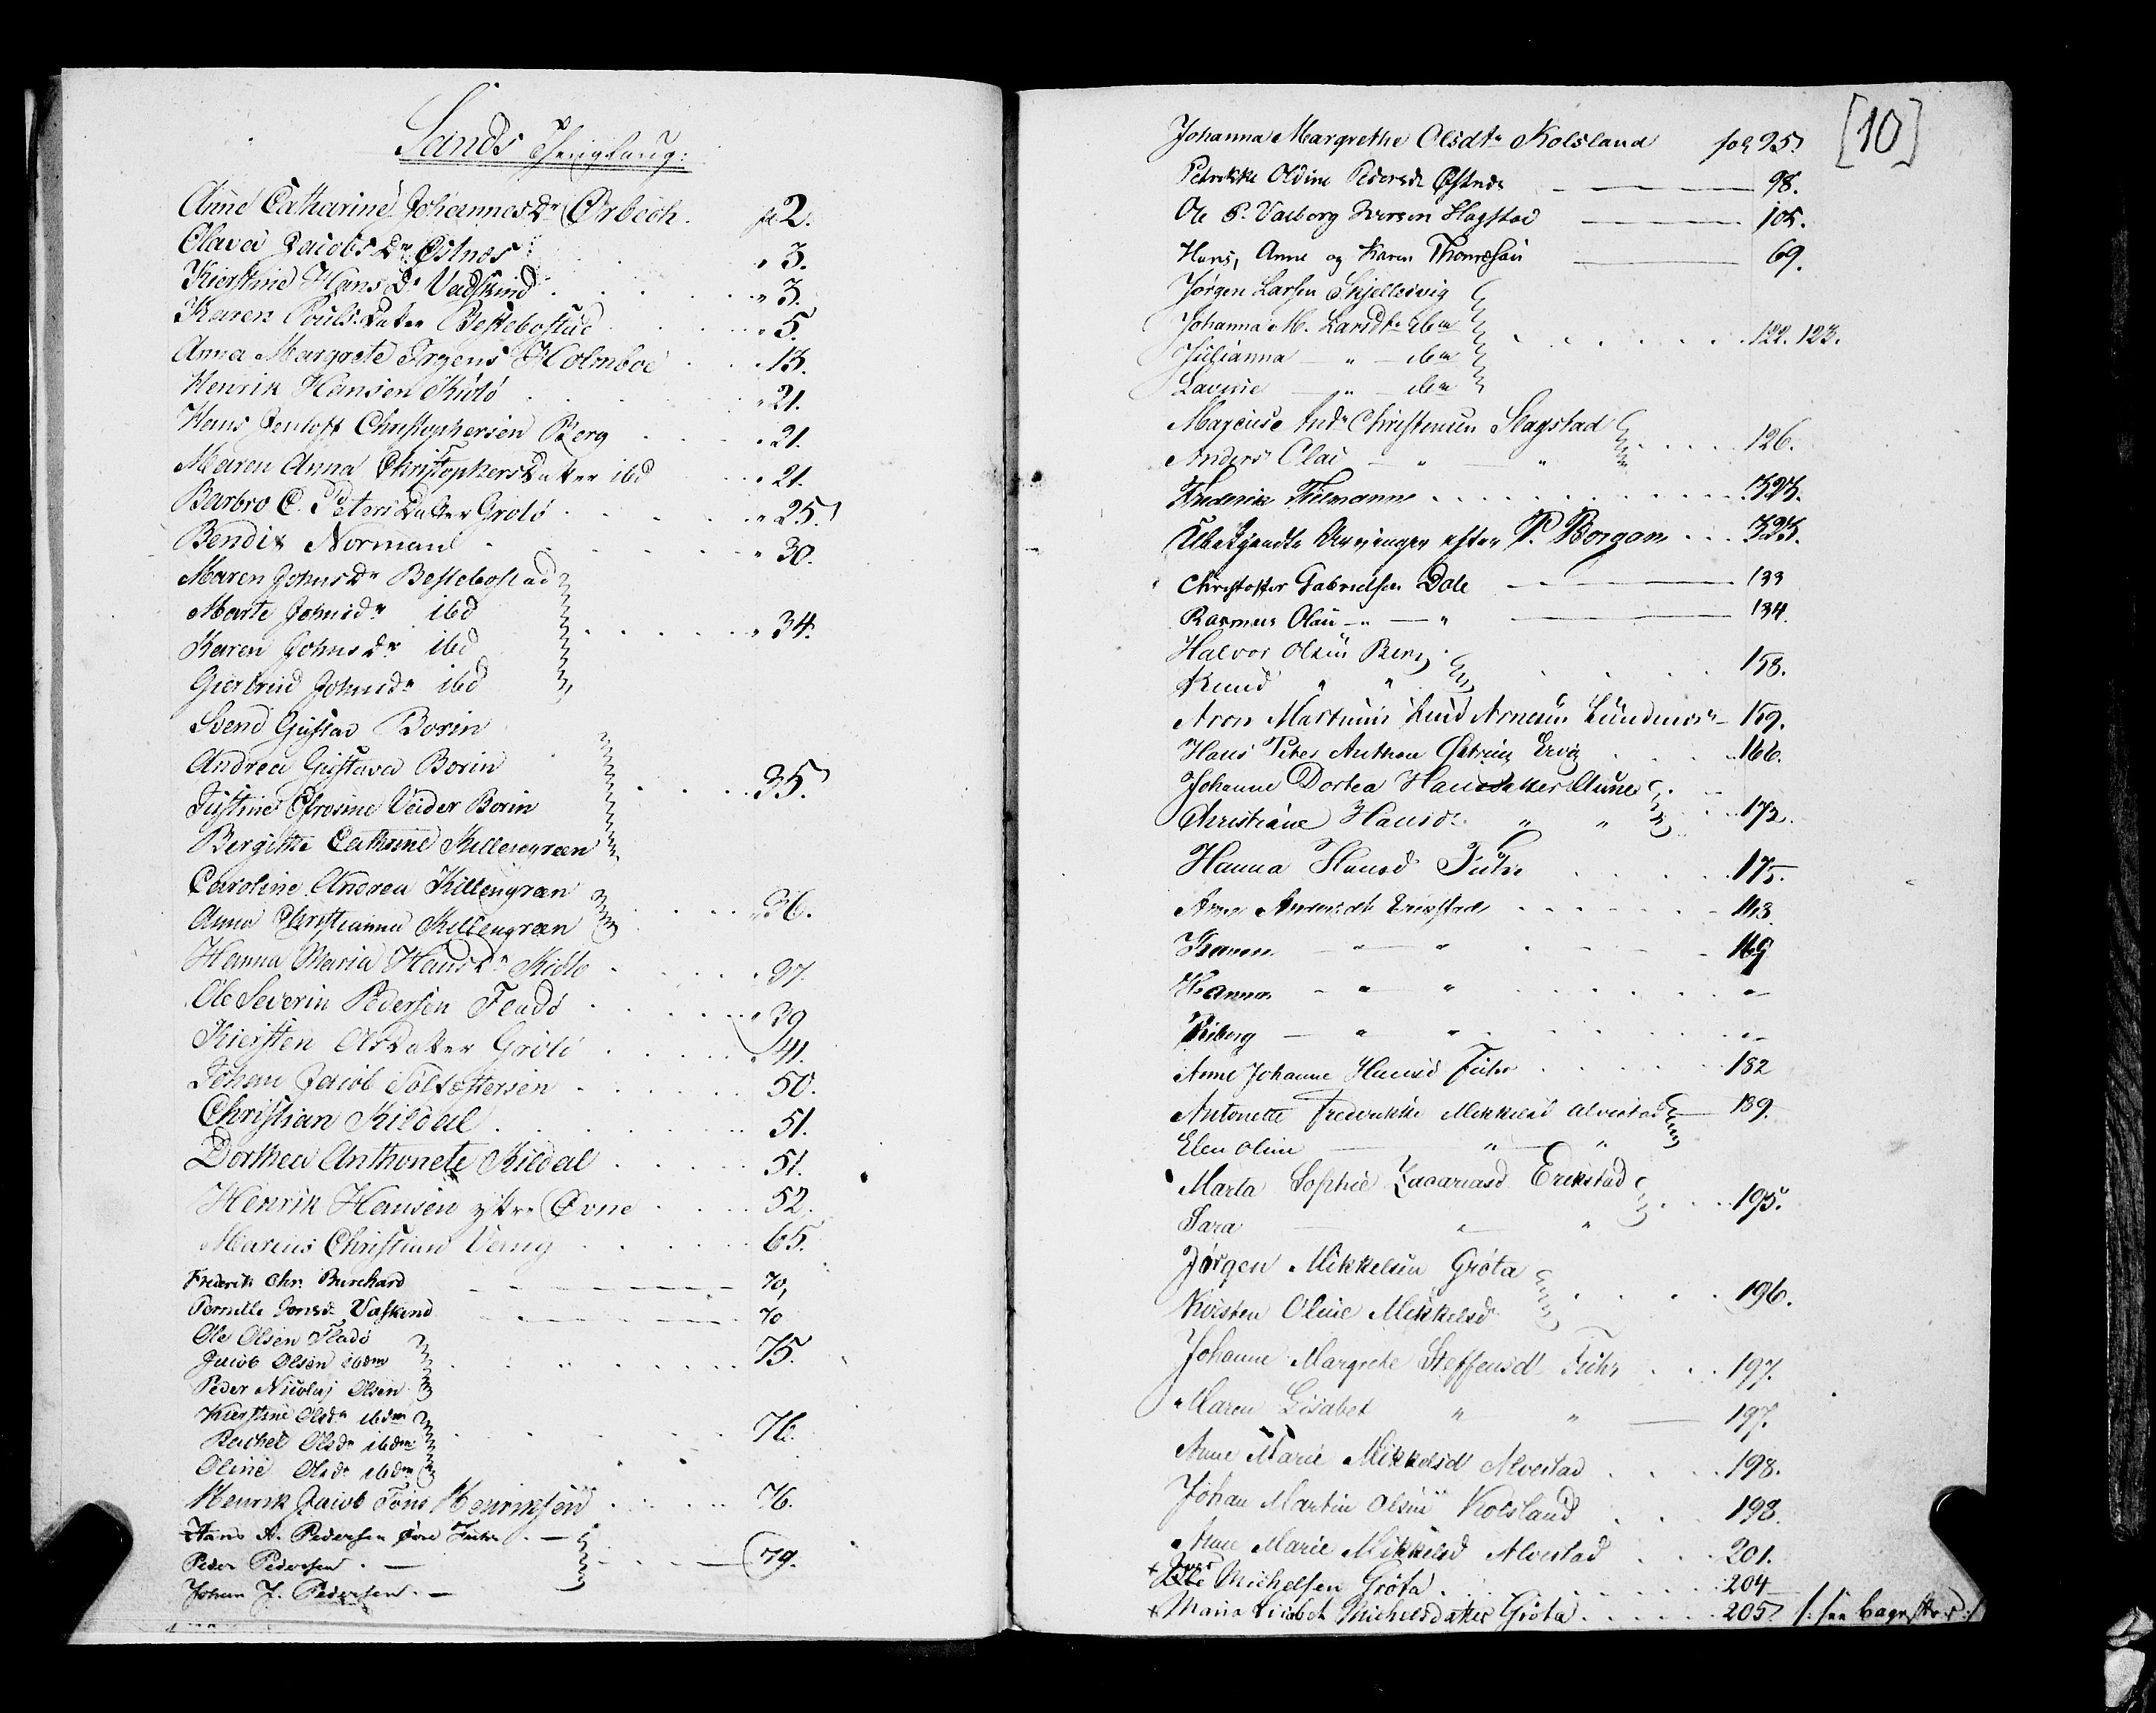 Sands Thinglaug:
Anne Catharine Johannesdr Ørbech. fol 2.
Olava Jacobsdr Østnes " 3.
Kierstine Hansdr Vadskind " 3.
Karen Poulsdatter Bestebostad " 5.
Anna Margrete Irgens Holmboe " 13.
Henrik Hansen Kiilø " 21.
Hans Jentoft Christophersen Berg " 21.
Maren Anna Christophersdatter ibd " 21.
Barbro C. Petersdatter Grøtø " 25.
Bendix Normand " 30.
Maren Johnsdr Bestebostad
Marte Johnsdr ibd " 34.
Karen Johnsdr ibd
Giertrud Johnsdr ibd
Svend Gustav Borin
Andrea Gustava Borin 35.
Justine Efrosine Veider Borin
Bergitte Cathrine Killengreen
Caroline Andrea Killengreen " 36.
Anna Christianna Killengreen
Hanna Maria Hansdr Kiilø " 37.
Ole Severin Pedersen Fladø " 39
Kiersten Olsdatter Grøtø " 41.
Johan Jacob 50.
Christian Kildal 51.
Dorthea Anthonete Kildal 51.
Henrik Hansen yttre Øvne 52.
Marius Christian 65.
Frederik Chr. Burchard 70,
Pernille Jonsdr Vaskind 70
Ole Olsen Fladø
Jacob Olsen ibdm 75.
Peder Nicolaj Olsen
Kierstine Olsdr ibdm
Rachel Olsdr ibdm 76.
Oline Olsdr ibdm
Henrik Jacob Tøns Henriksen 76.
Hans A. Pedersen Øvre
Peder Pedersen. — 79.
Johan J. Pedersen. —
[10]
Johanna Margrethe Olsdtr Kolsland fol 95.
Petrikke Oldine Pedersdr Østnes 98.
Ole P. Valborg Iversen Slagstad 105.
Hans, Anne og Karen Thomesen 69.
Jørgen Larsen Skjellesvig
Johanna M. Larsdtr ibm 122. 123.
Julianna " — ibm
Lavine — " — ibm
Slagstad
Anders Olai — " — " 126.
Frederik Tilemann 323.
Ubekjendte Arvinger efter P. Borgan 323.
Christoffer Gabrielsen Dale 133
Rasmus Olai — " — " 134.
Halvor Olsen Berg
Knud " " 158.
Aron Martinus Knud Arnesen 159.
Hans Peter Anthon 166.
Johanne Dortea Hansdatter Aune
Christiane Hansdr " " 173.
Hanna Hansd 175.
Anne Andersdtr 113
Karen — " — " 119
Hanna — " — " "
— " — " "
Anne Johanne Hansd 182
Antonette Fredrikke Mikkelsd Alvestad 189.
Elen Oline " "
Marta Sophie Zacariasd Erikstad 195.
Sara — " — "
Jørgen Mikkelsen Grøta
Kirsten Oline Mikkelsd 196.
Johanne Margrete Steffensd 197.
Maren Lisabet " " 197.
Anne Marie Mikkelsd Alvestad 198.
Johan Martin Olsen Kolsland 198.
Anne Marie Mikkelsd Alvestad 201.
+ Michelsen Grøta. 204
+ Maria Lisabet Michelsdatter Grøta. 205